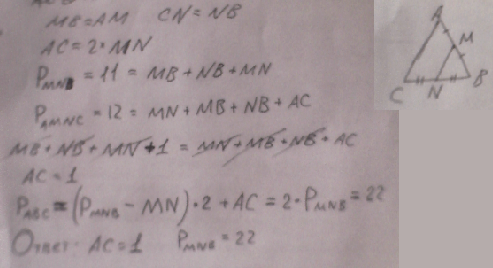 MB = AM CN = NB
AC = 2 · MN
P_MNB = 11 = MB + NB + MN
P_AMNC = 12 = MN + MB + NB + AC
MB + NB + MN + 1 = MN + MB + NB + AC
AC = 1
P_ABC = (P_MNB - MN) · 2 + AC = 2 · P_MNB = 22
Ответ: AC = 1 P_MNB = 22
A
M
C N B